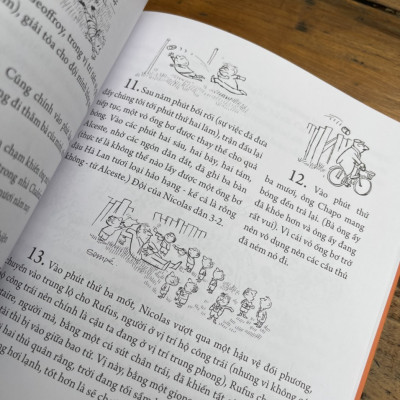 Geoffroy, trong vai
), giải tỏa cho đội
Cũng chính vào phút
ng đi thăm bà của
11. Sau năm phút bối rối (sự việc đã đưa
đẩy chúng tôi tới phút thứ hai lăm), trận đấu lại
tiếp tục, một vỏ ông bơ được thay thế cho quả
bóng. Vào các phút hai sáu, hai bảy, hai tám,
Alceste, nhờ các ngón dẫn dắt, đã ghi ba bàn
thực tế là không thể nào lấy được một ống bơ
đầu Hà Lan tươi loại hảo hạng - kể cả là rỗng
không - từ Alceste.) Đội của Nicolas dẫn 3-2.
12. Vào phút thứ
ba mươi, ông Chapo mang
bóng đến trả lại. (Bà ông ấy
đã khỏe hơn và ông ấy đang
rất vui). Vì cái vỏ ông bơ trở
nên vô dụng nên các cầu thủ
đã ném nó đi.
Sempé
13. Vào phút thứ ba mốt, Nicolas vượt qua một hậu vệ đối phương,
chuyền vào trung lộ cho Rufus, người ở vị trí hộ công trái (nhưng vì không
hộ công trái nên chính là cậu ta đang ở vị trí trung phong). Rufus
người mà, bằng một cú sút chân trái, đã khiến tất cả
thì bị vào giữa bao tử. Vì này, bằng một giọng
hai thủ quân rằng, trời đang tối sầm
hơi lạnh, tốt hơn là sẽ